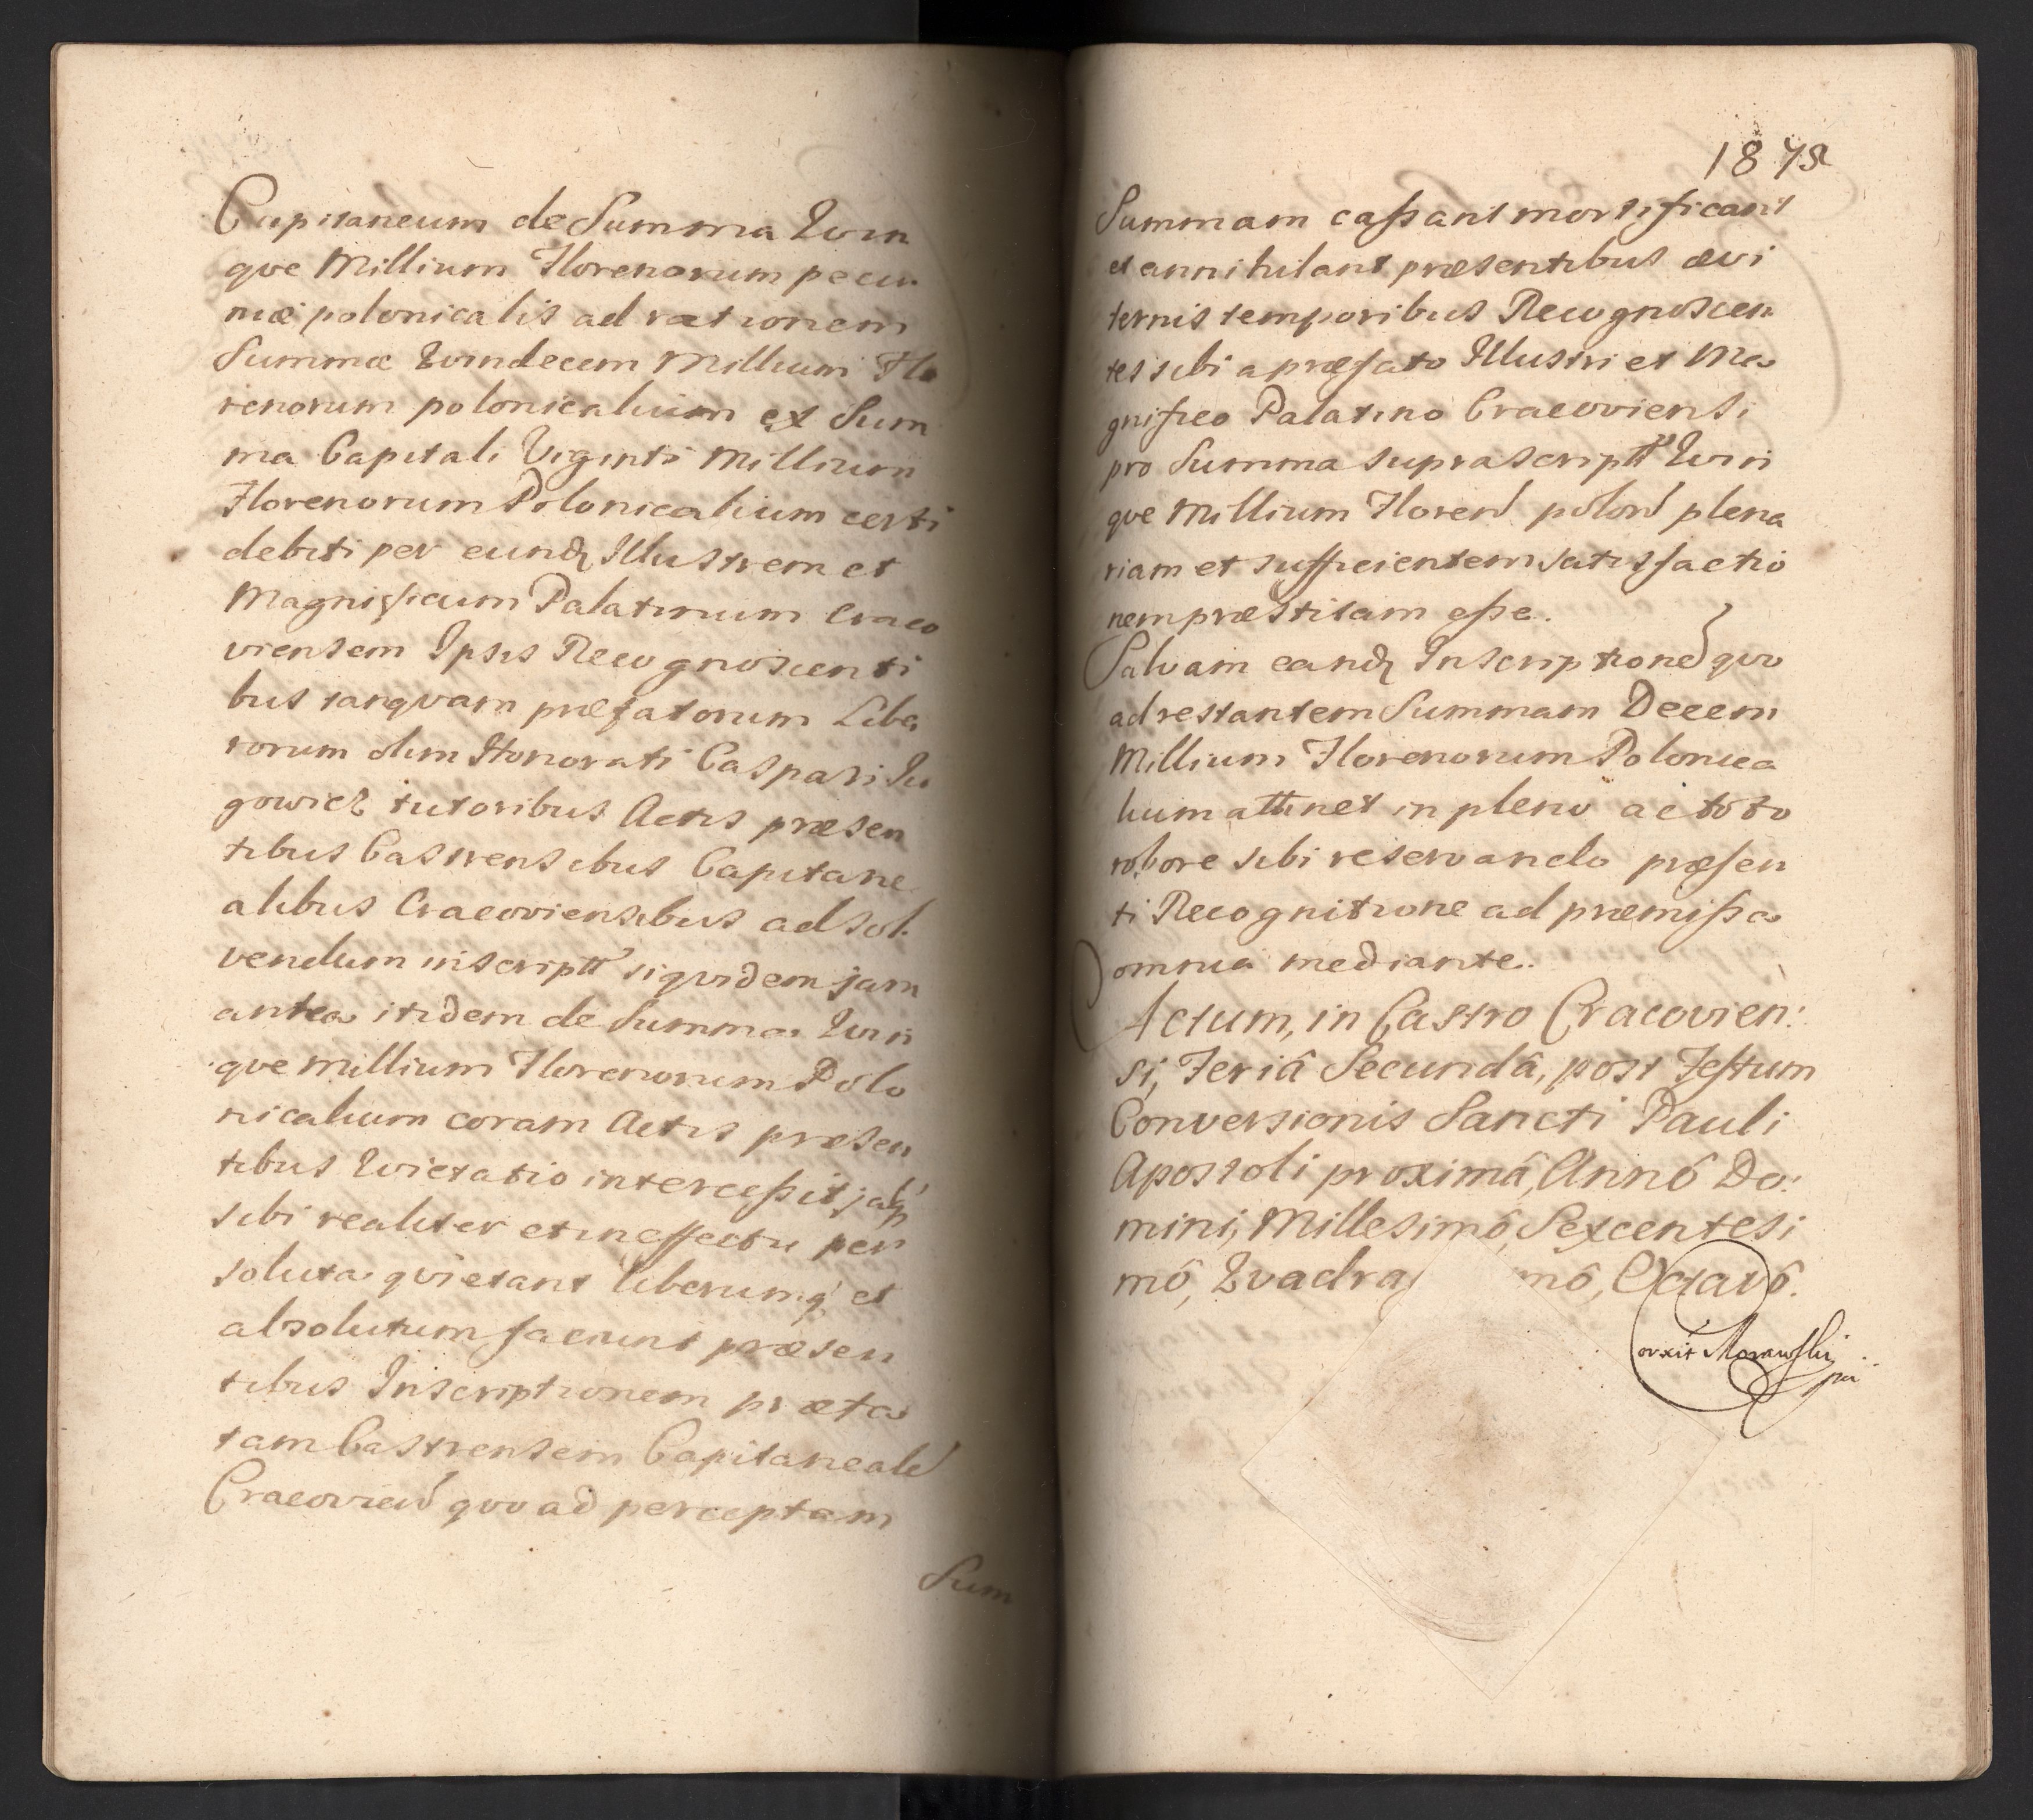 Capitaneum de Summa Quin
que Millium Florenorum pecu
niæ polonicalis ad rationem
Summæ Quindecem Millium Flo
renorum polonicalium ex Sum
ma Capitali Viginti Millium
Florenorum Polonicalium certi
debiti per eundꝫ Illustrem et
Magnificum Palatinum Craco
viensem Ipsis Recognoscenti
bus tanqvam præfatorum Libe
rorum olim Honorati Caspari Ju
gowicz tutoribus Actis præsen
tibus Castrensibus Capitane
alibus Cracoviensibus ad sol
vendum inscriptt siqvidem jam
antea itidem de Summa Quin
que Millium Florenorum Polo
nicalium coram Actis præsen
tibus Qvietatio intercessit
sibi realiter et in effectu per
soluta qvietant liberumq́ et
absolutum faciunt præsen
tibus Inscriptionem præfa
tam Castrensem Capitaneale
Cracovien qvo ad perceptam
Sum
187
Summam cassant mortificant
et annihilant præsentibus ævi
ternis temporibus Recognoscen
tes sibi a præfato Illustri et Ma
gnifico Palatino Cracoviensi
pro Summa suprascriptt Quin
que Millium Floren polon plena
riam et sufficientem satisfactio
nem præstitam esse.
Salvam eandꝫ Inscriptione qvo
ad restantem Summam Decem
Millium Florenorum Polonica
lium attinet in pleno ac toto
robore sibi reservando præsen
ti Recognitione ad præmissa
omnia mediante.
Actum, in Castro Cracovien:
si, Feriâ Secundâ, post Festum
Conversionis Sancti Pauli
Apostoli proximâ, Annô Do:
mini, Millesimô, Sexcentesi
mô, Qvadra mô, Octavô.
Morawski